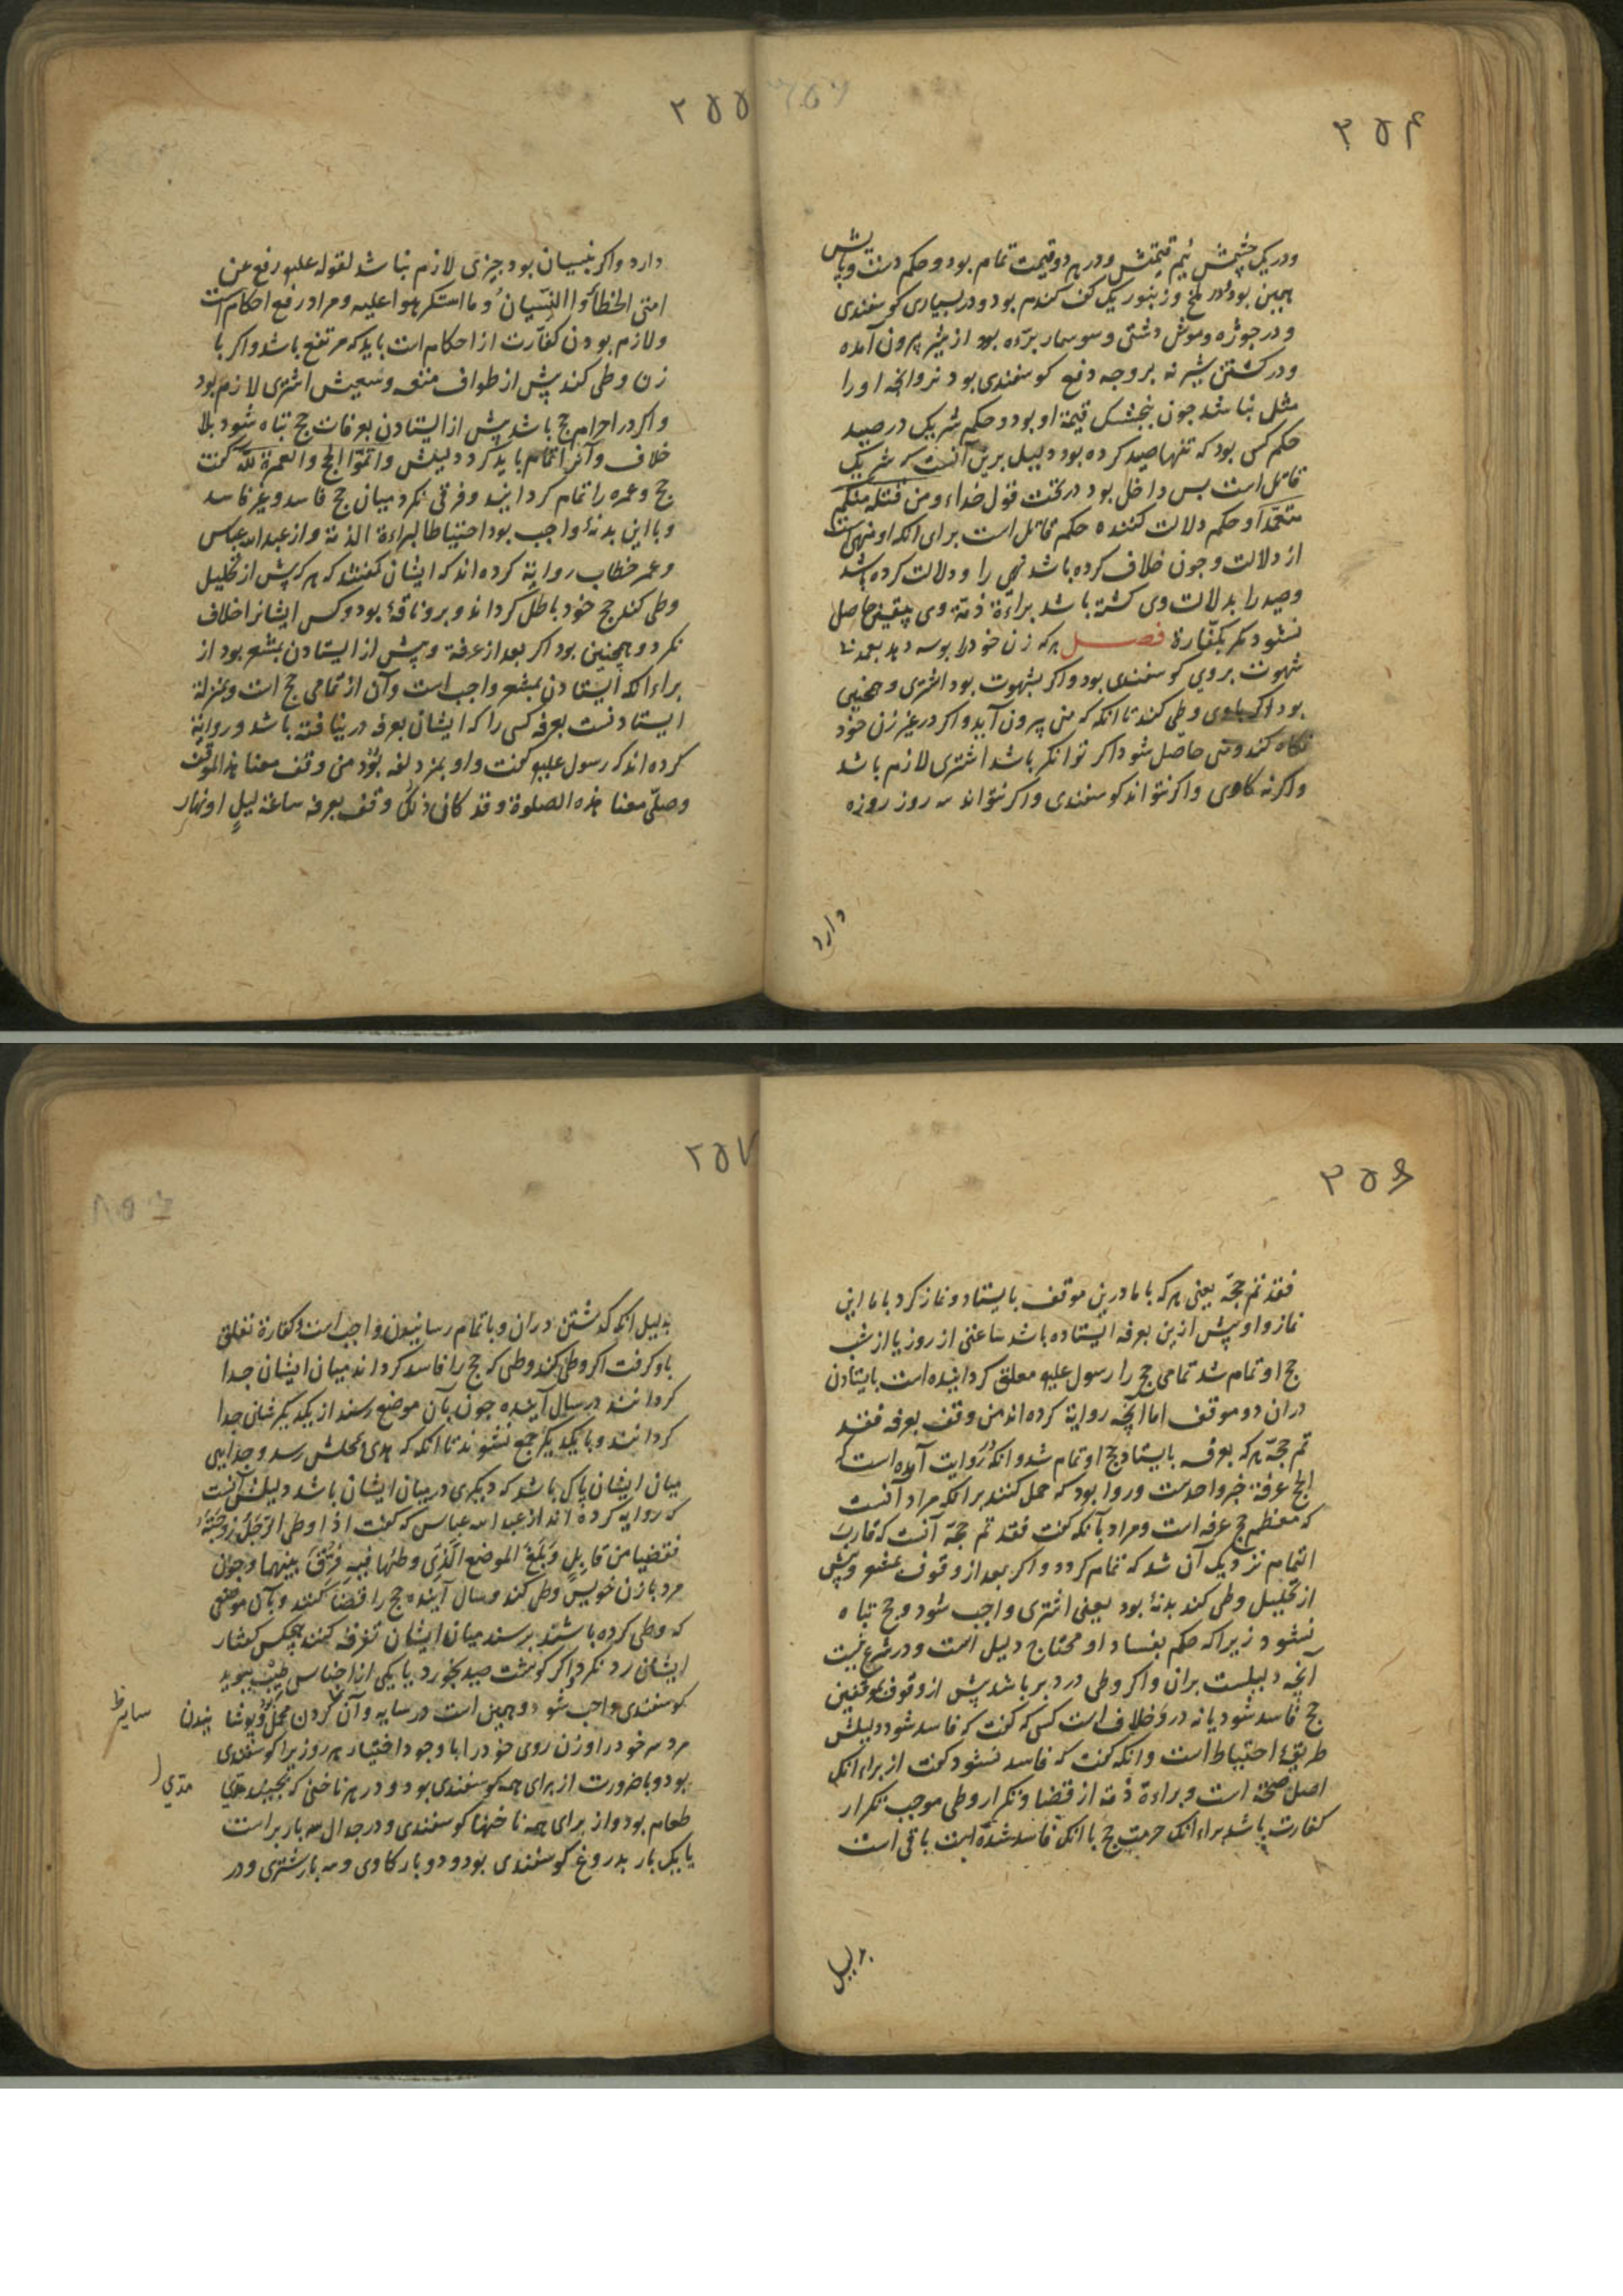 ۲۵۴
ودر یک چشمش نیم قیمتش ودر هر دو قیمت تمام بود وحکم دست وپایش
همین بود ودر ملخ وزنبور یک کف کندم بود ودر بسیاری کوسفندی
ودر جوژه وموش دشتی وسوسمار بزّه بود از شیر بیرون آمده
ودر کشتن شیر نه بر وجه دفع کوسفندی بود نر وانچه اورا
مثل نباشد چون بنجشک قیمة او بود وحکم شریک در صید
حکم کس بود که تنها صید کرده بود دلیل برین آنست که شریک
قاتل است بس داخل بود در تحت قول خداء ومن قتله منکم
متعمّداً وحکم دلالت کننده حکم قاتل است برای انکه او منهی است
از دلالت وچون خلاف کرده باشد نهی را ودلالت کرده باشد
وصید را بدلالت وی کشته باشد براءة ذمّة وی بیقین حاصل
نشود مکر بکفّارة فصل هر که زن خود را بوسه دهد بعمد نه
شهوت بر وی کوسفندی بود واکر بشهوت بود اشتری وهمچنین
بود اکر با وی وطی کند تا انکه که منی بیرون آید واکر در غیر زن خود
نکاه کند ومنی حاصل شود اکر توانکر باشد اشتری لازم باشد
واکر نه کاوی واکر نتواند کوسفندی واکر نتواند سه روز روزه
دارد
۲۵۵
دارد واکر بنسیان بود چیزی لازم نباشد لقوله علیه رفع عن
امتی الخطأ والنّسیان وما استکرهوا علیه ومراد رفع احکام است
ولازم بودن کفّارت از احکام است باید که مرتفع باشد واکر با
زن وطی کند پیش از طواف متعه وسعیش اشتری لازم بود
واکر در احرام حج باشد پیش از ایستادن بعرفات حج تباه شود بلا
خلاف وآنرا تمام باید کرد دلیلش واتمّوا الحج والعمرة لله کفت
حج وعمره را تمام کردانید وفرقی نکرد میان حج فاسد وغیر فاسد
وبا این بدنهٔ واجب بود احتیاطا لبراءة الذمّة واز عبد الله عباس
وعمر خطاب روایة کرده اند که ایشان کفتند که هر که پیش از تحلیل
وطی کند حج خود باطل کرداند وبرو ناقهٔ بود وکس ایشانرا خلاف
نکرد وهمچنین بود اکر بعد از عرفة وپیش از ایستادن بمشعر بود از
براء انکه ایستادن بمشعر واجب است وآن از تمامی حج است وبمنزلة
ایستادنست بعرفه کسی را که ایشان بعرفه در نیافته باشد وروایة
کرده اند که رسول علیه کفت واو بمزدلفه بود من وقف معنا هذا الموقف
وصلّی معنا هذه الصلوة وقد کان قبل ذلک وقف بعرفه ساعة لیلٍ او نهار
۲۵۶
فقد تم حجّه یعنی هر که با ما درین موقف بایستاد ونماز کرد با ما این
نماز واو پیش ازین بعرفه ایستاده باشد ساعتی از روز یا از شب
حج او تمام شد تمامی حج را رسول علیه معلق کردانیده است بایستادن
دران دو موقف اما انچه روایة کرده اند من وقف بعرفه فقد
تم حجّه هر که بعرفه بایستاد حج او تمام شد وانکه در روایت آمده است که
الحج عرفة خبر واحدست وروا بود که حمل کنند بر انکه مراد آنست
که معظم حج عرفه است ومراد بآنکه کفت فقد تم حجّه آنست که قارب
التمام نزدیک آن شد که تمام کردد واکر بعد از وقوف بمشعر وپیش
از تحلیل وطی کند بدنهٔ بود یعنی اشتری واجب شود وحج تباه
نشود زیرا که حکم بفساد او محتاج دلیل است ودر شرع نیست
آنچه دلیلست بران واکر وطی در دبر باشد پیش از وقوف بموقفین
حج فاسد شود یا نه درو خلاف است کسی که کفت که فاسد شود دلیلش
طریقهٔ احتیاط است وانکه کفت که فاسد نشود کفت از براء انک
اصل صحّة است وبراءة ذمّة از قضا وتکرار وطی موجب تکرار
کفارت باشد براء انک حرمت حج با انک فاسد شده است باقی است
بدلیل
۲۵۷
بدلیل انکه کذشتن دران وبا تمام رسانیدن واجب است وکفارة تعلق
باو کرفت اکر وطی کند وطی که حج را فاسد کرداند میان ایشان جدا
کردانند در سال آینده چون بآن موضع رسند از یکدیکرشان جدا
کردانند وبا یکدیکر جمع نشوند تا انکه که هدی بمحلش رسد وجدایی
میان ایشان پاک باشد که دیکری در میان ایشان باشد دلیلش آنست
که روایه کرده اند از عبد الله عباس که کفت اذا وطی الرّجل زوجته
فقضیا من قابل وبلغ الموضع الّذی وطئها فیه فرّق بینهما وچون
مرد با زن خویش وطی کند وسال آینده حج را قضا کنند وبآن موضعی
که وطی کرده باشند برسند میان ایشان تفرقه کنند هیچکس کفتار
ایشان رد نکرد واکر کوشت صید بخورد یا یکی از اجناس طیب ببوید
کوسفندی واجب شود وهمین است در سایه وآن کردن محمل وپوشانیدن
سایه ظ
مرد سر خود را وزن روی خود را با وجود اختیار هر روزیرا کوسفندی
بود وبا ضرورت از برای همه کوسفندی بود ودر هر ناخنی که بچیند مدّی
مدّي
طعام بود واز برای همه ناخنها کوسفندی ودر جدال سه بار براست
یا یک بار بدروغ کوسفندی بود ودو بار کاوی وسه بار شتری ودر